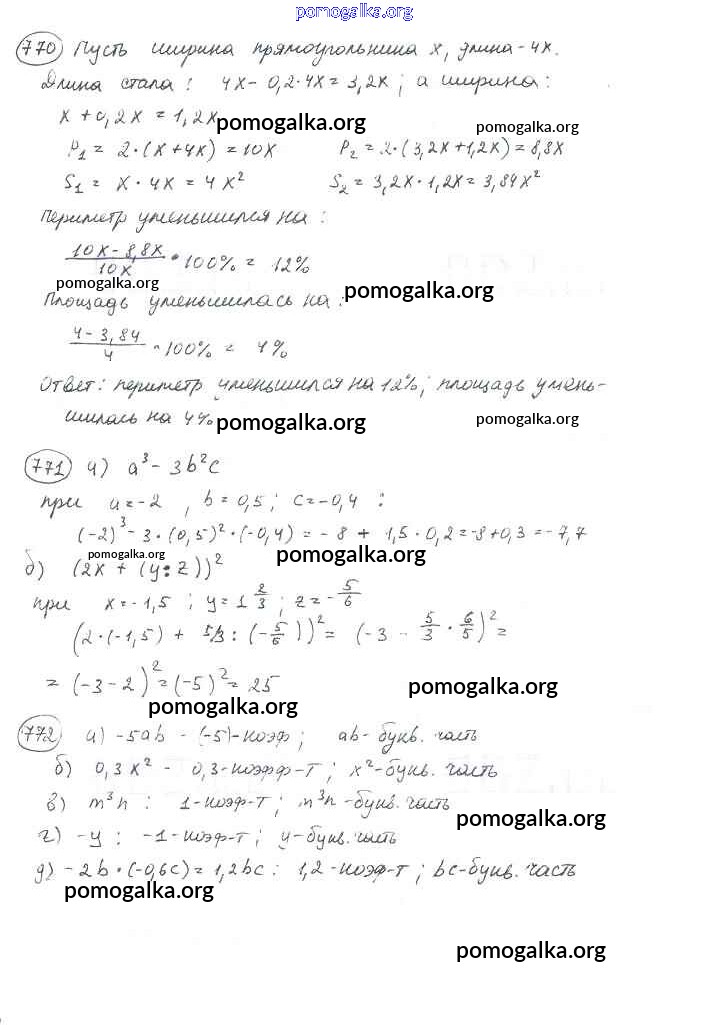 pomogalka.org
770 Пусть ширина прямоугольника x, длина - 4x.
Длина стала: 4x - 0,2·4x = 3,2x; а ширина:
x + 0,2x = 1,2x
pomogalka.org pomogalka.org
P₁ = 2·(x+4x) = 10x P₂ = 2·(3,2x+1,2x) = 8,8x
S₁ = x·4x = 4x² S₂ = 3,2x·1,2x = 3,84x²
Периметр уменьшился на:
(10x - 8,8x)/10x · 100% = 12%
pomogalka.org pomogalka.org
Площадь уменьшилась на:
(4 - 3,84)/4 · 100% = 4%
Ответ: периметр уменьшился на 12%; площадь умень-
шилась на 4%
pomogalka.org pomogalka.org
771 а) a³ - 3b²c
при a = -2, b = 0,5; c = -0,4:
(-2)³ - 3·(0,5)²·(-0,4) = -8 + 1,5·0,2 = -8+0,3 = -7,7
pomogalka.org pomogalka.org
б) (2x + (y:z))²
при x = -1,5; y = 1 2/3; z = -5/6
(2·(-1,5) + 5/3 : (-5/6))² = (-3 - 5/3 · 6/5)² =
= (-3-2)² = (-5)² = 25
pomogalka.org
pomogalka.org
772 а) -5ab - (-5)-коэф; ab- букв. часть
б) 0,3x² - 0,3-коэфф-т; x²-букв. часть
в) m³n: 1-коэф-т; m³n -букв. часть
pomogalka.org
г) -y: -1-коэф-т; y-букв. часть
д) -2b·(-0,6c) = 1,2bc: 1,2-коэф-т; bc-букв. часть
pomogalka.org
pomogalka.org